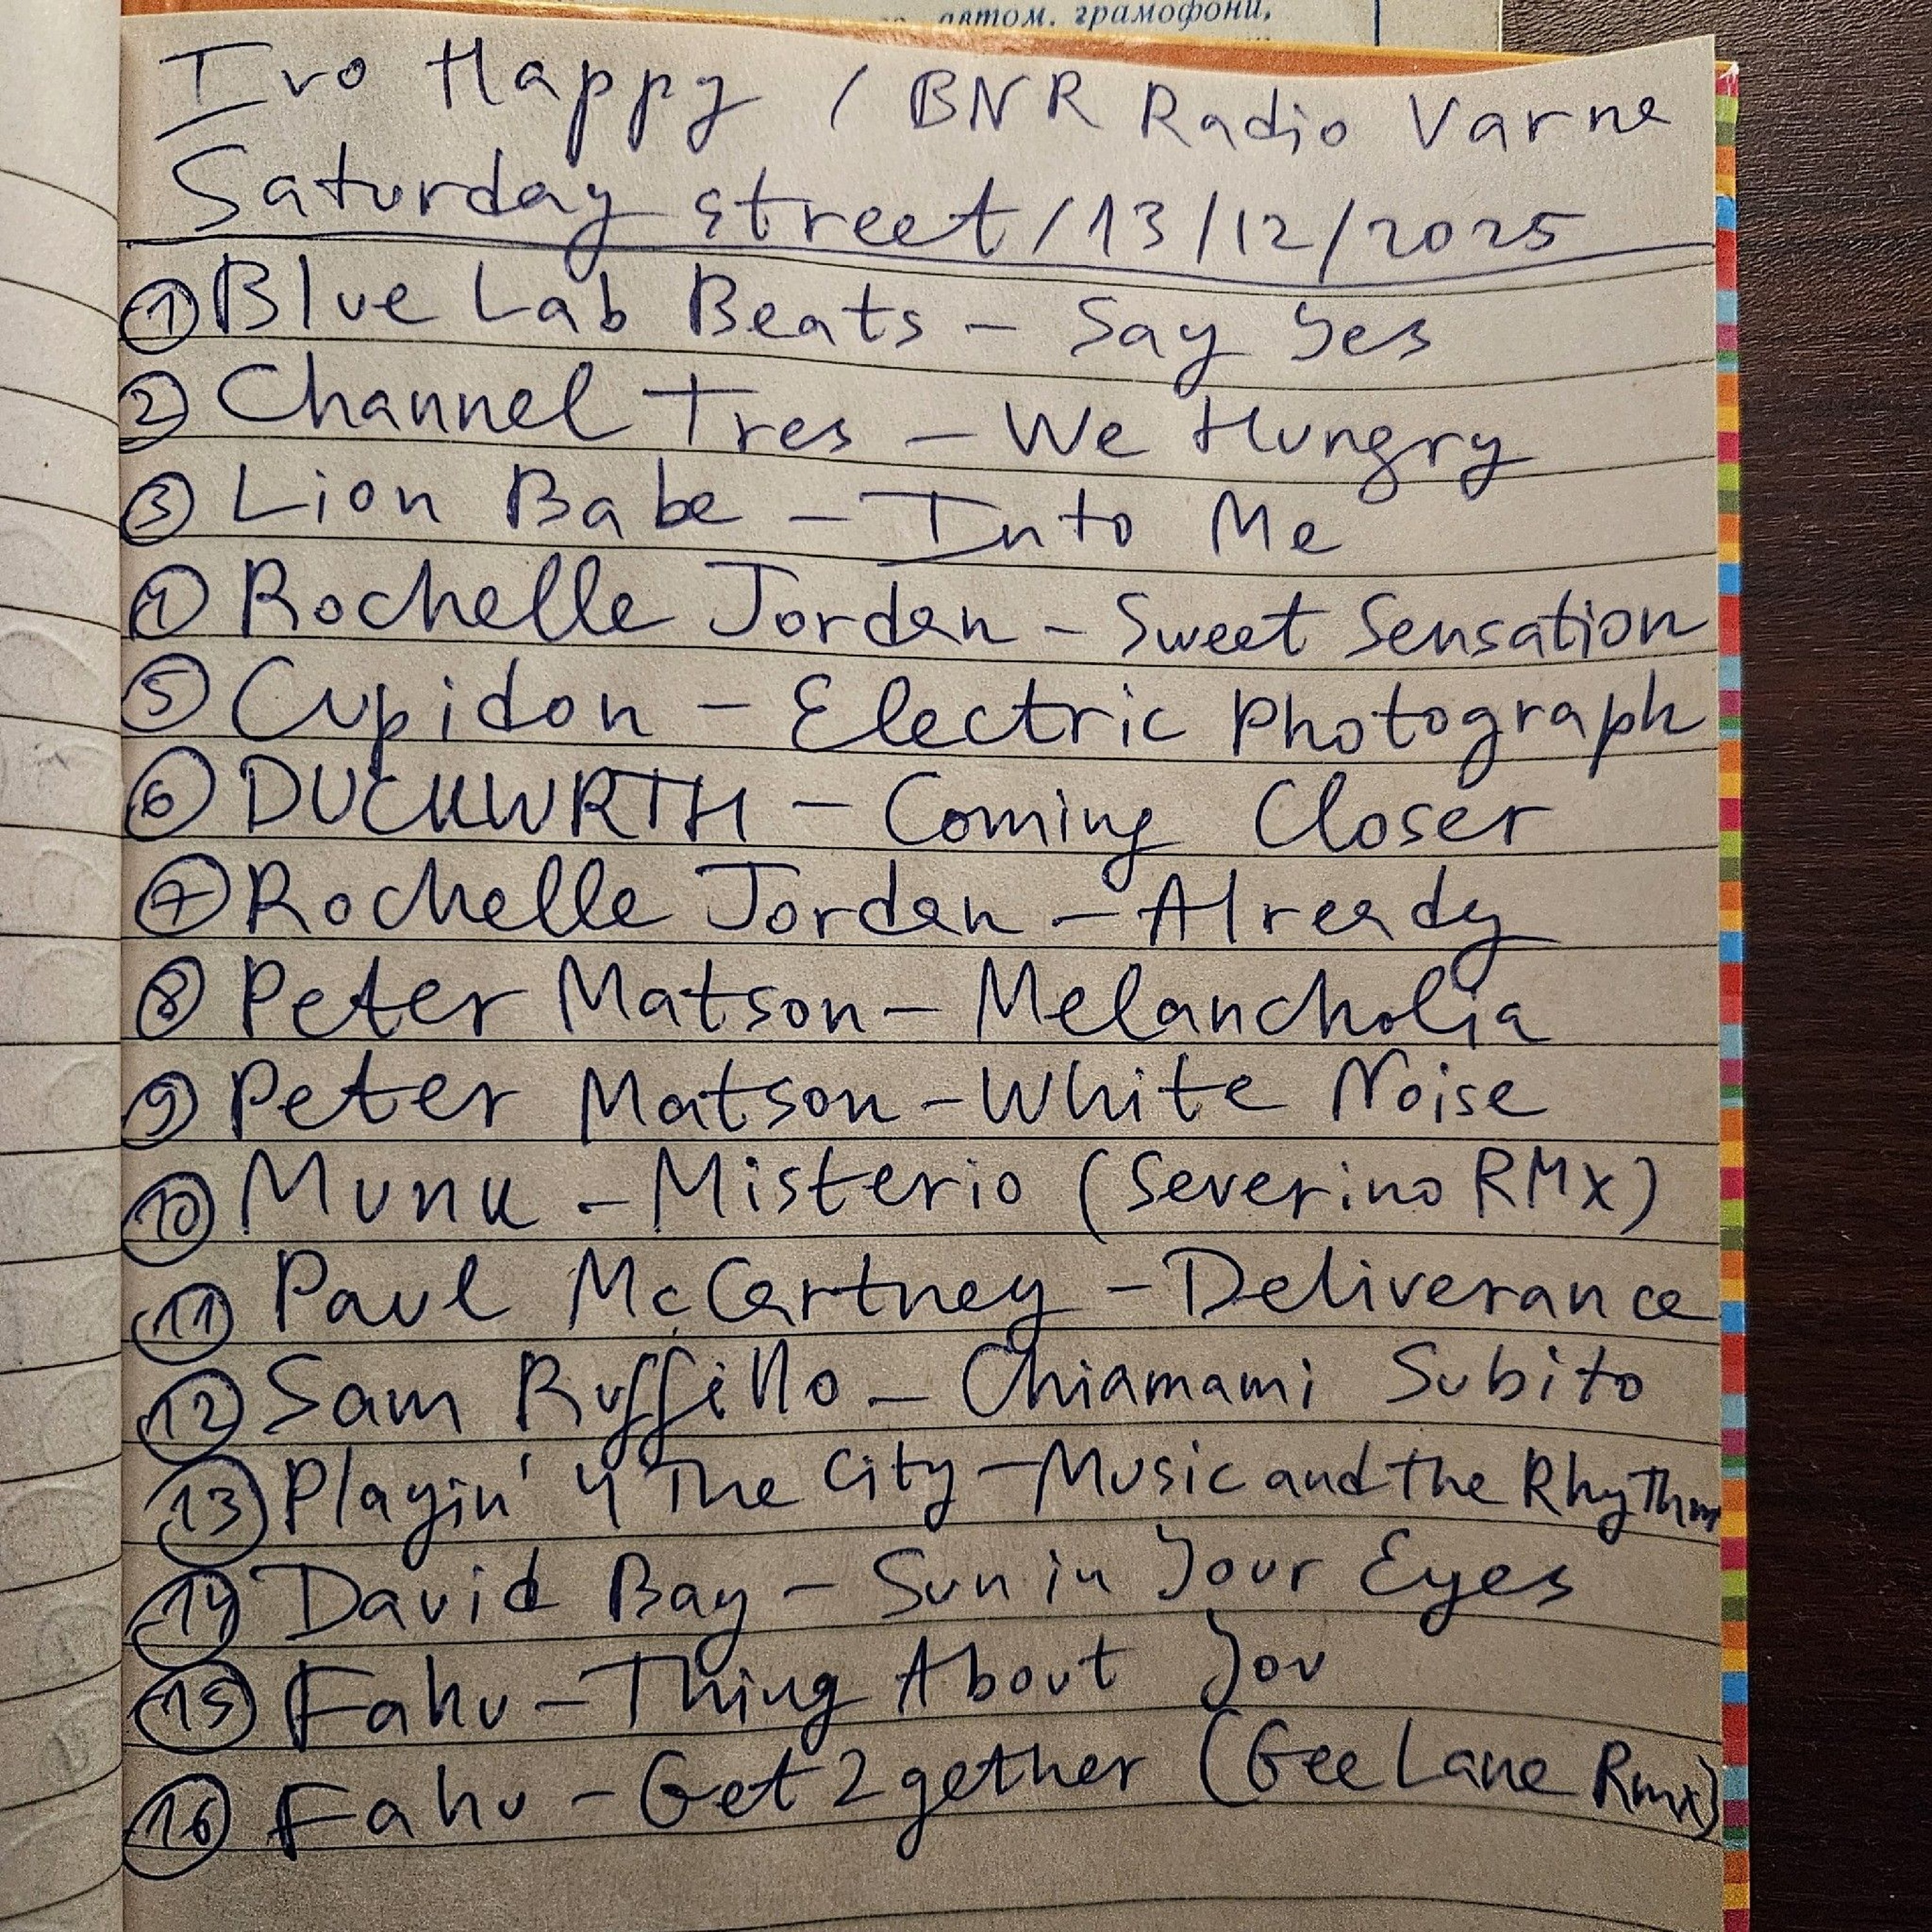 автом. грамофони,
Ivo Happy / BNR Radio Varna
Saturday street / 13/12/2025
① Blue Lab Beats – Say Yes
② Channel Tres – We Hungry
③ Lion Babe – Into Me
④ Rochelle Jordan – Sweet Sensation
⑤ Cupidon – Electric Photograph
⑥ DUCKWRTH – Coming Closer
⑦ Rochelle Jordan – Already
⑧ Peter Matson – Melancholia
⑨ Peter Matson – White Noise
⑩ Munk – Misterio (Severino RMX)
⑪ Paul McCartney – Deliverance
⑫ Sam Ruffillo – Chiamami Subito
⑬ Playin' 4 The City – Music and the Rhythm
⑭ David Bay – Sun in Your Eyes
⑮ Fahu – Thing About You
⑯ Fahu – Get 2gether (Gee Lane Rmx)